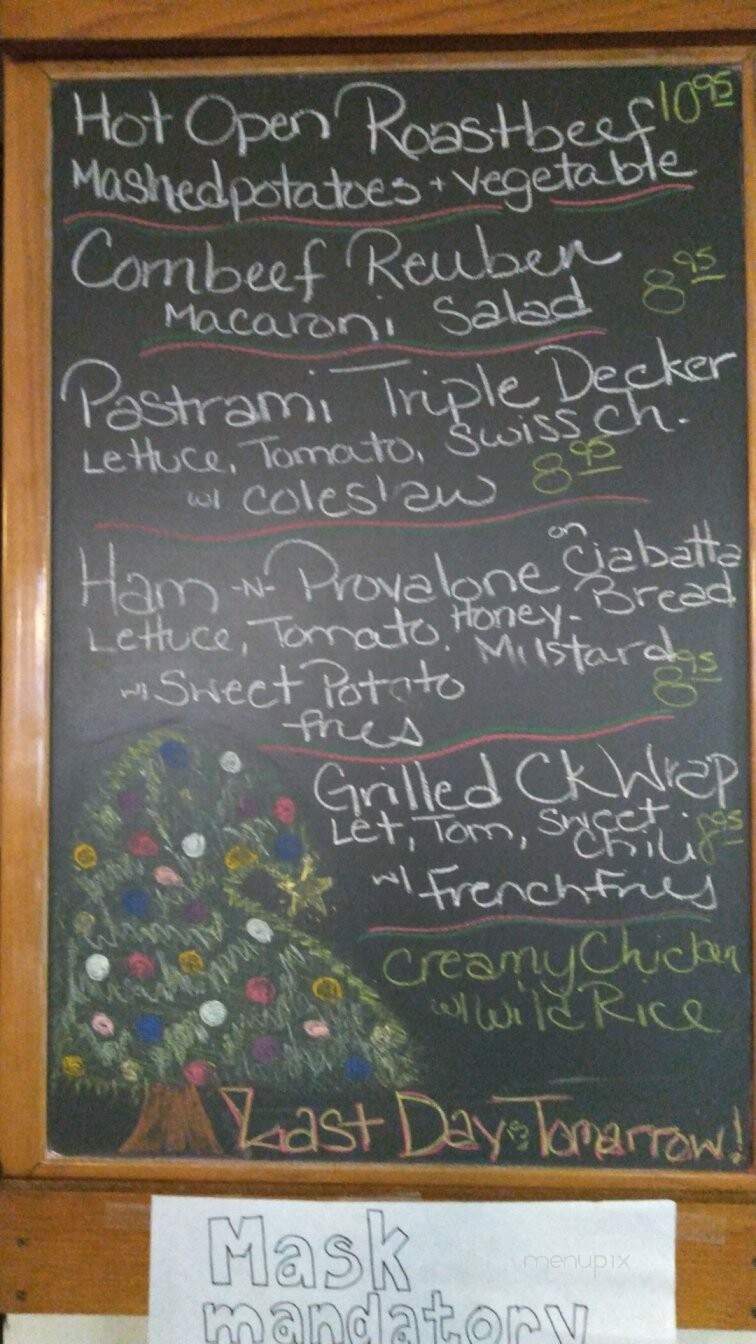 Hot Open Roastbeef 10 95
Mashedpotatoes + vegetable
Cornbeef Reuben
Macaroni Salad 8 95
Pastrami Triple Decker
Lettuce, Tomato, Swiss ch.
w/ coleslaw 8 95
Ham -N- Provalone on Ciabatta Bread
Lettuce, Tomato. Honey-
Mustard
w/ Sweet Potato 8 95
fries
Grilled CK Wrap
Let, Tom, Sweet
Chili 8 95
w/ French fries
Creamy Chicken
w/ Wild Rice
Last Day Tomarrow!
Mask
mandatory
menupix